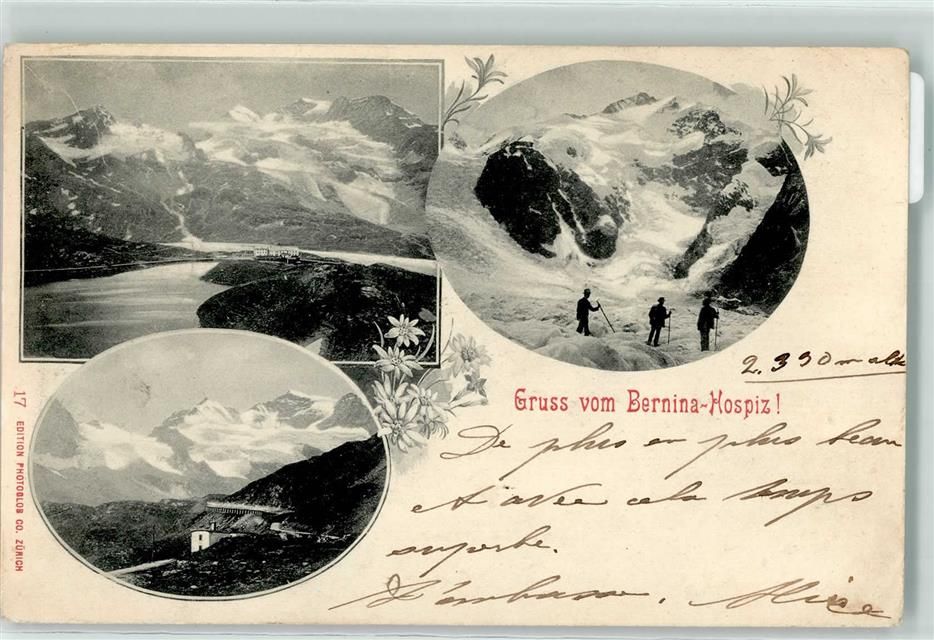 2,330 m alt
Gruss vom Bernina-Hospiz!
De plus en plus beau
et avec cela temps
superbe.
T'embrasse, Alice
17 EDITION PHOTOGLOB CO. ZÜRICH